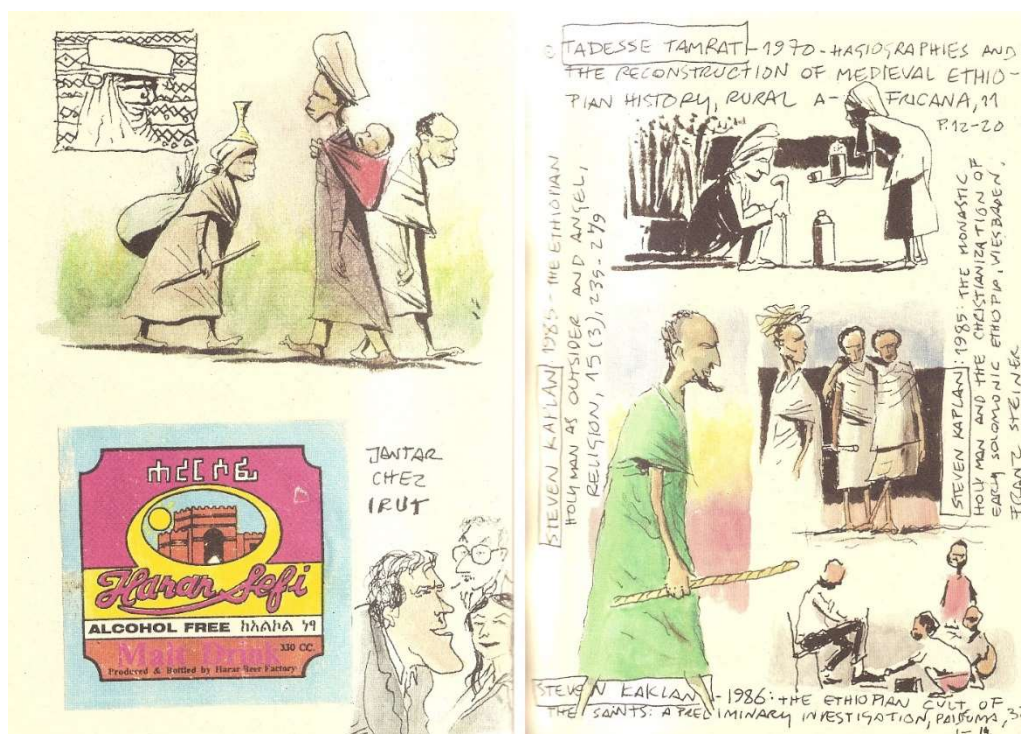 JANTAR
CHEZ
IRUT
ሐረር ሶፊ
Harar Sofi
ALCOHOL FREE ከአልኮል ነፃ
Malt Drink
330 CC.
Produced & Bottled by Harar Beer Factory
TADESSE TAMRAT - 1970 - HAGIOGRAPHIES AND
THE RECONSTRUCTION OF MEDIEVAL ETHIO-
PIAN HISTORY, RURAL A- FRICANA, 11
P. 12-20
STEVEN KAPLAN 1985 - THE ETHIOPIAN
HOLY MAN AS OUTSIDER AND ANGEL,
RELIGION, 15 (3), 235-249
STEVEN KAPLAN : 1985 - THE MONASTIC
HOLY MAN AND THE CHRISTIANIZATION OF
EARLY SOLOMONIC ETHIOPIA, VIESBADEN,
FRANZ STEINER
STEVEN KAKLAN - 1986: THE ETHIOPIAN CULT OF
THE SAINTS: A PRELIMINARY INVESTIGATION, PAIDUMA,